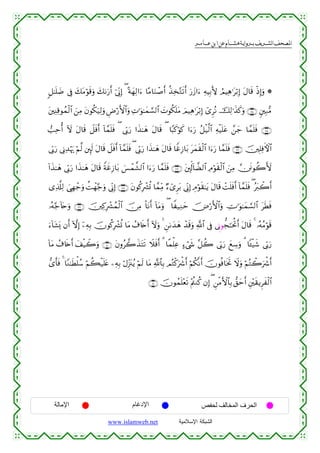 المصحف الشريف برواية هشام عن ابن عامر
۞ وَإِذْ قَالَ إِبْرَٰهِيمُ لِأَبِيهِ ءَازَرَ أَتَتَّخِذُ أَصْنَامًا ءَالِهَةً إِنِّي أَرَىٰكَ وَقَوْمَكَ فِي ضَلَٰلٍ
مُّبِينٍ وَكَذَٰلِكَ نُرِي إِبْرَٰهِيمَ مَلَكُوتَ السَّمَٰوَٰتِ وَالْأَرْضِ وَلِيَكُونَ مِنَ الْمُوقِنِينَ
فَلَمَّا جَنَّ عَلَيْهِ الَّيْلُ رَءَا كَوْكَبًا قَالَ هَٰذَا رَبِّي فَلَمَّا أَفَلَ قَالَ لَا أُحِبُّ
الْآفِلِينَ فَلَمَّا رَءَا الْقَمَرَ بَازِغًا قَالَ هَٰذَا رَبِّي فَلَمَّا أَفَلَ قَالَ لَئِن لَّمْ يَهْدِنِي رَبِّي
لَأَكُونَنَّ مِنَ الْقَوْمِ الضَّالِّينَ فَلَمَّا رَءَا الشَّمْسَ بَازِغَةً قَالَ هَٰذَا رَبِّي هَٰذَا
أَكْبَرُ فَلَمَّا أَفَلَتْ قَالَ يَٰقَوْمِ إِنِّي بَرِيءٌ مِّمَّا تُشْرِكُونَ إِنِّي وَجَّهْتُ وَجْهِيَ لِلَّذِي
فَطَرَ السَّمَٰوَٰتِ وَالْأَرْضَ حَنِيفًا وَمَا أَنَا مِنَ الْمُشْرِكِينَ وَحَاجَّهُ
قَوْمُهُ قَالَ أَتُحَٰجُّونِي فِي اللَّهِ وَقَدْ هَدَىٰنِ وَلَا أَخَافُ مَا تُشْرِكُونَ بِهِ إِلَّا أَن يَشَاءَ
رَبِّي شَيْئًا وَسِعَ رَبِّي كُلَّ شَيْءٍ عِلْمًا أَفَلَا تَتَذَكَّرُونَ وَكَيْفَ أَخَافُ مَا
أَشْرَكْتُمْ وَلَا تَخَافُونَ أَنَّكُمْ أَشْرَكْتُم بِاللَّهِ مَا لَمْ يُنَزِّلْ بِهِ عَلَيْكُمْ سُلْطَٰنًا فَأَيُّ
الْفَرِيقَيْنِ أَحَقُّ بِالْأَمْنِ إِن كُنتُمْ تَعْلَمُونَ
الحرف المخالف لحفص الإدغام الإمالة
www.islamweb.net الشبكة الإسلامية